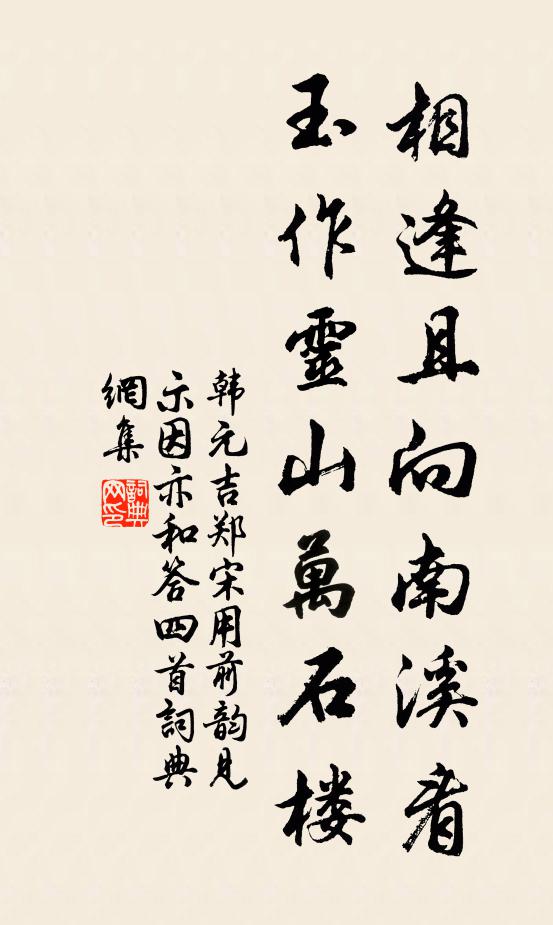 相逢且向南溪看
玉作靈山萬石楼
韩元吉郑宋用前韵见
示因亦和答四首詞典
網集
詞典
网印